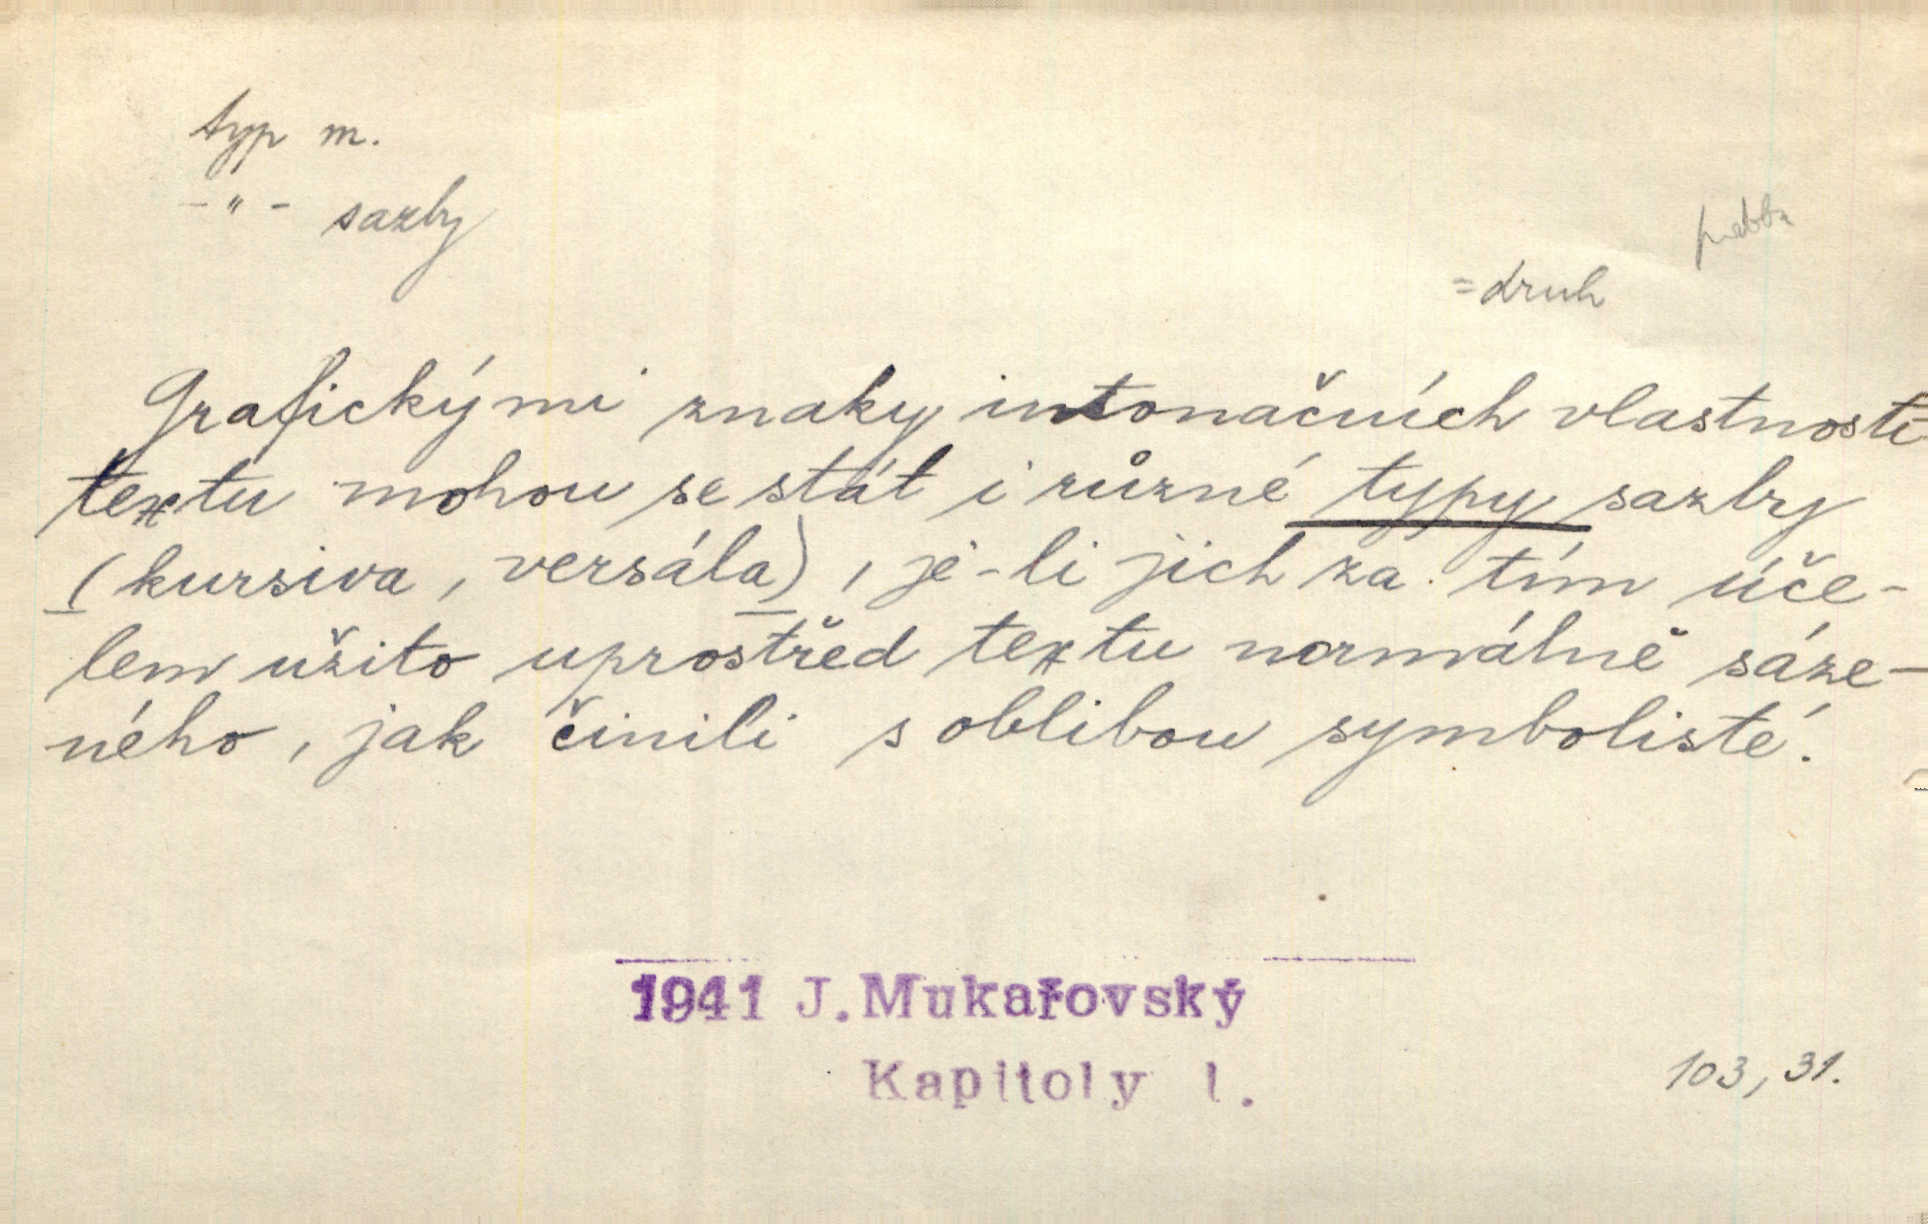 typ m.
-"- sazby
=druh
Grafickými znaky intonačních vlastností
textu mohou se stát i různé typy sazby
(kursiva, versála), je-li jich za tím úče-
lem užito uprostřed textu normálně sáze-
ného, jak činili s oblibou symbolisté.
1941 J. Mukařovský
Kapitoly I.
103, 31.